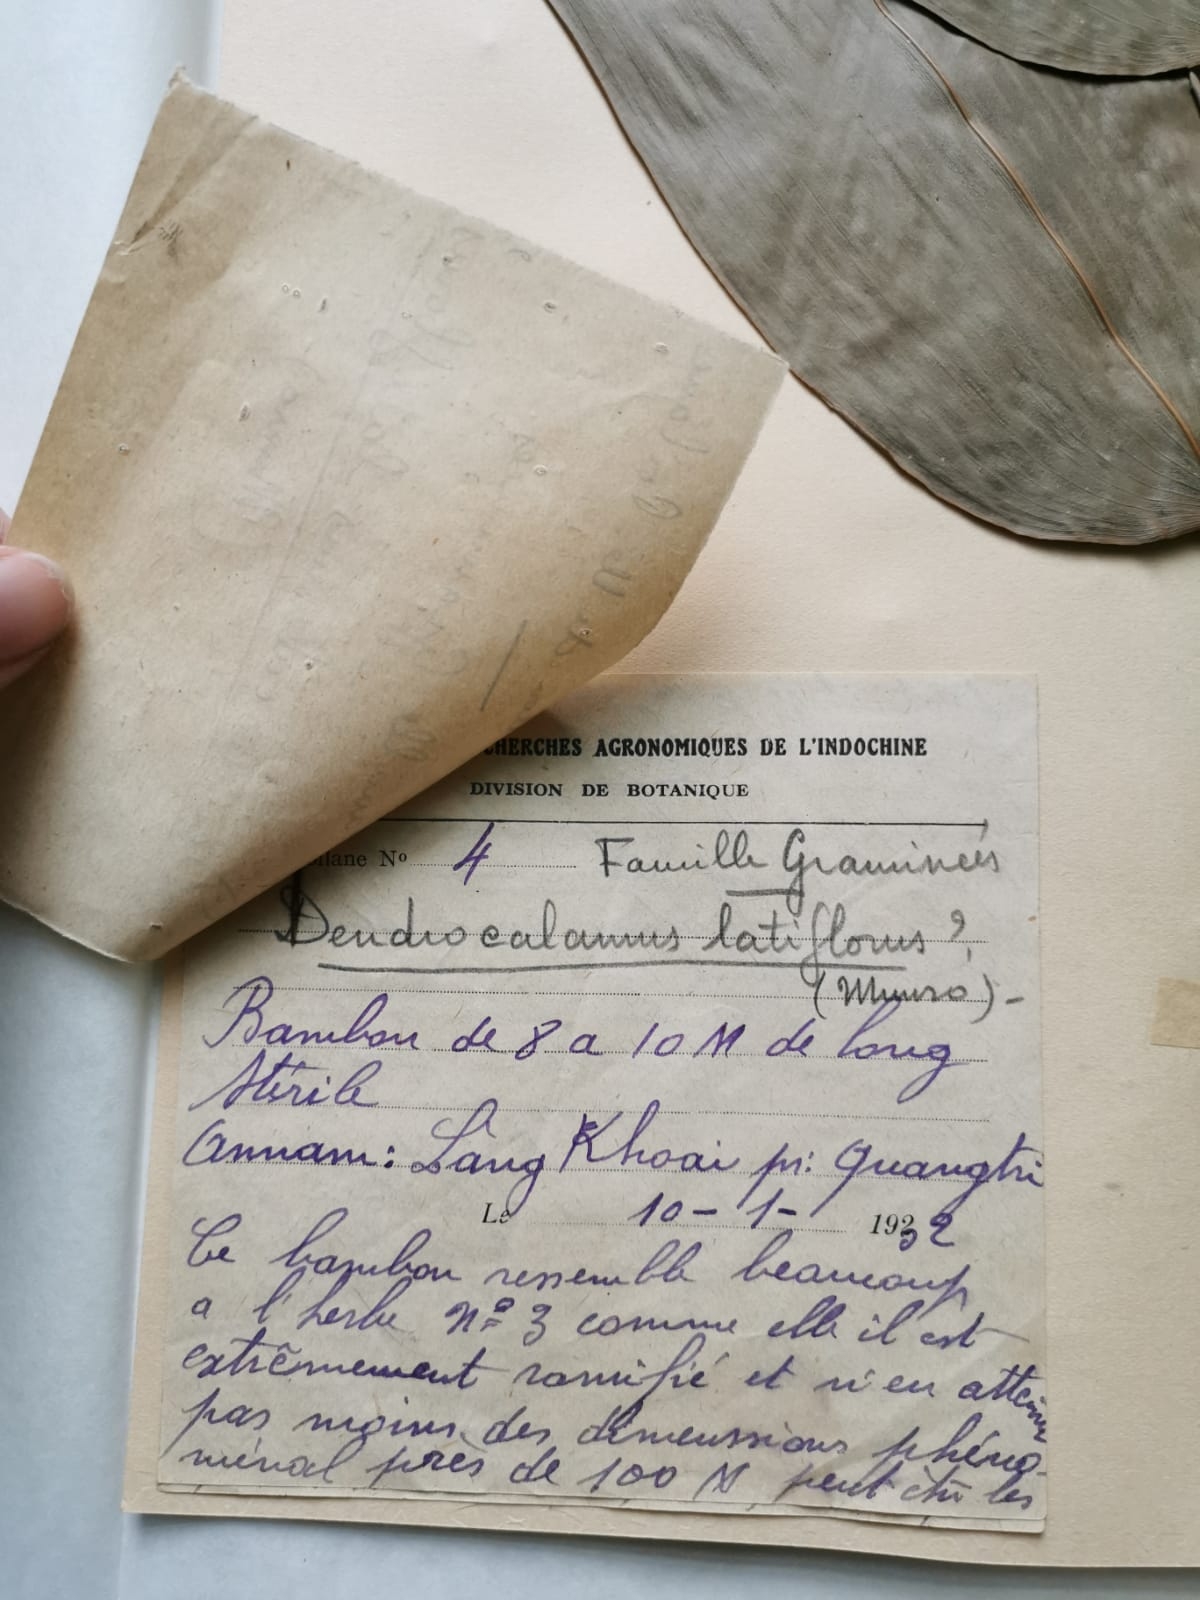 CHERCHES AGRONOMIQUES DE L'INDOCHINE
DIVISION DE BOTANIQUE
No 4 Famille Graminées
Dendrocalamus latiflorus ?
(Munro) -
Bambou de 8 a 10 M de long
Stérile
Annam: Lang Khoai pr: Quangtri
Le 10 - 1 - 1932
Ce bambou ressemble beaucoup
a l'herbe nº 3 comme elle il est
extrêmement ramifié et n'en
pas moins des dimenssions phéno-
ménal près de 100 M peut être les